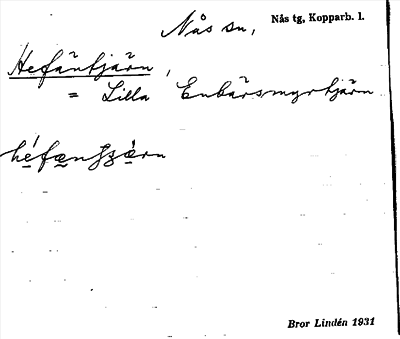 Nås sn,
Nås tg, Kopparb. l.
Hefäntjärn,
= Lilla Enbärsmyrtjärn
Bror Lindén 1931